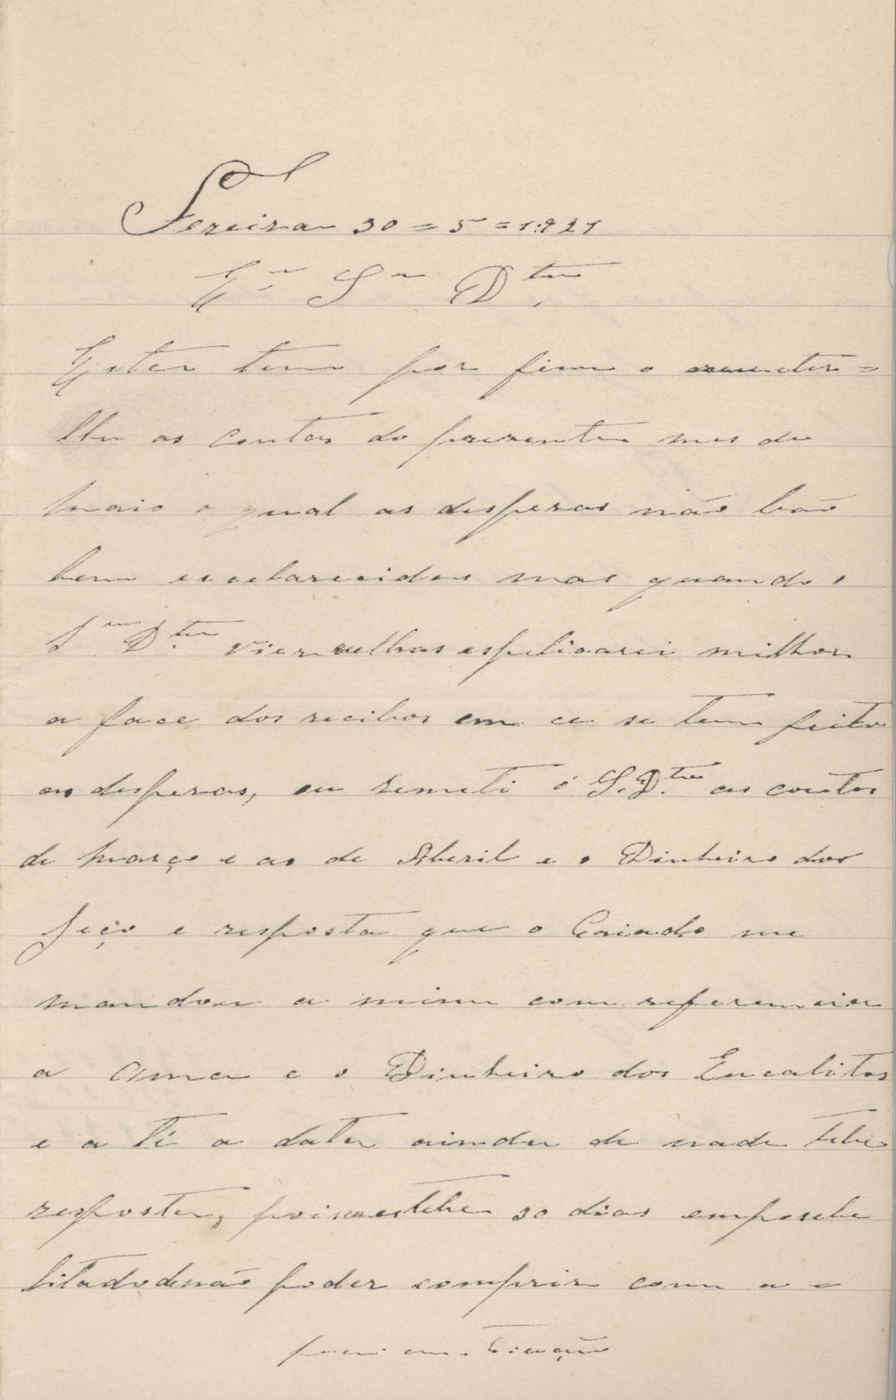 Pereira 30 = 5 = 1:921
Exmo Snr Dtor
Esta tem por fim o remeter =
lhe as contas do prezente mes de
Maio o qual as despezas não bão
bem escelarecidas mas quando o
Snr Dtor vier eulhas espelicarei milhor
a face dos recibos em ce se tem feito
as despezas, eu remeti ó S. Dtor as contas
de Março e as de Aberil e o Dinheiro dos
feço e resposta que o Caiado me
mandou a mim com referencia
a ama e o Dinheiro dos Eucalitos
e a té a data ainda de nada tibe
resposta, poisaestibe 30 dias emposebe
litadodenão poder comprir com a =